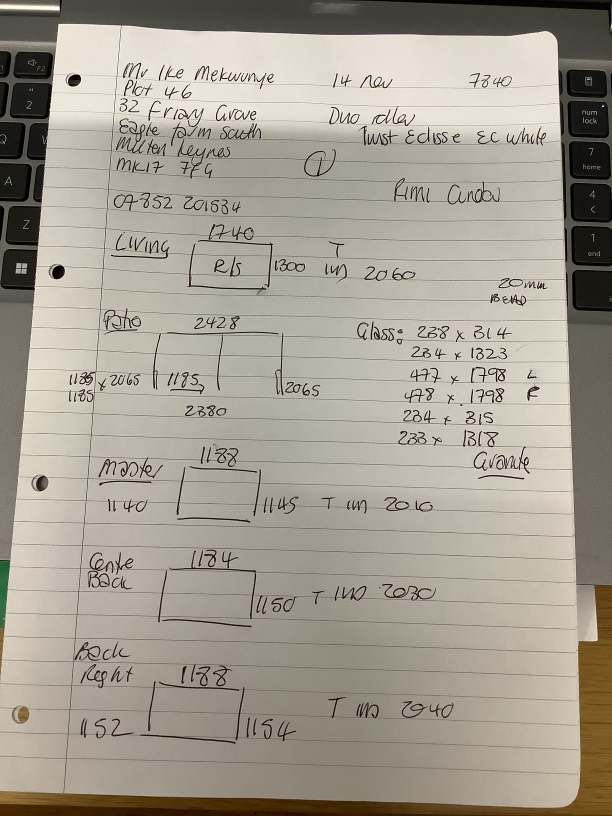 Mr Ike Mekwunye 14 Nov 7840
Plot 46
32 Friary Grove Duo roller
Eagle farm South Twist Eclisse EC white
Milton Keynes
MK17 7FG 1
Rimi
07852 201534
Living 1740
R/S 1300 T 2060
20mm
BEAD
Patio 2428 Glass: 238 x 314
234 x 1323
1185 x 2065 1185 2065 477 x 1798 L
1185 478 x 1798 R
2380 234 x 315
233 x 1318
Grande
Master 1188
1140 1145 T 2010
Centre 1184
Back 1150 T 2030
Back
Right 1188
1152 1154 T 2040
F2
2
Q
A
Z
num
lock
7
home
4
<
1
end